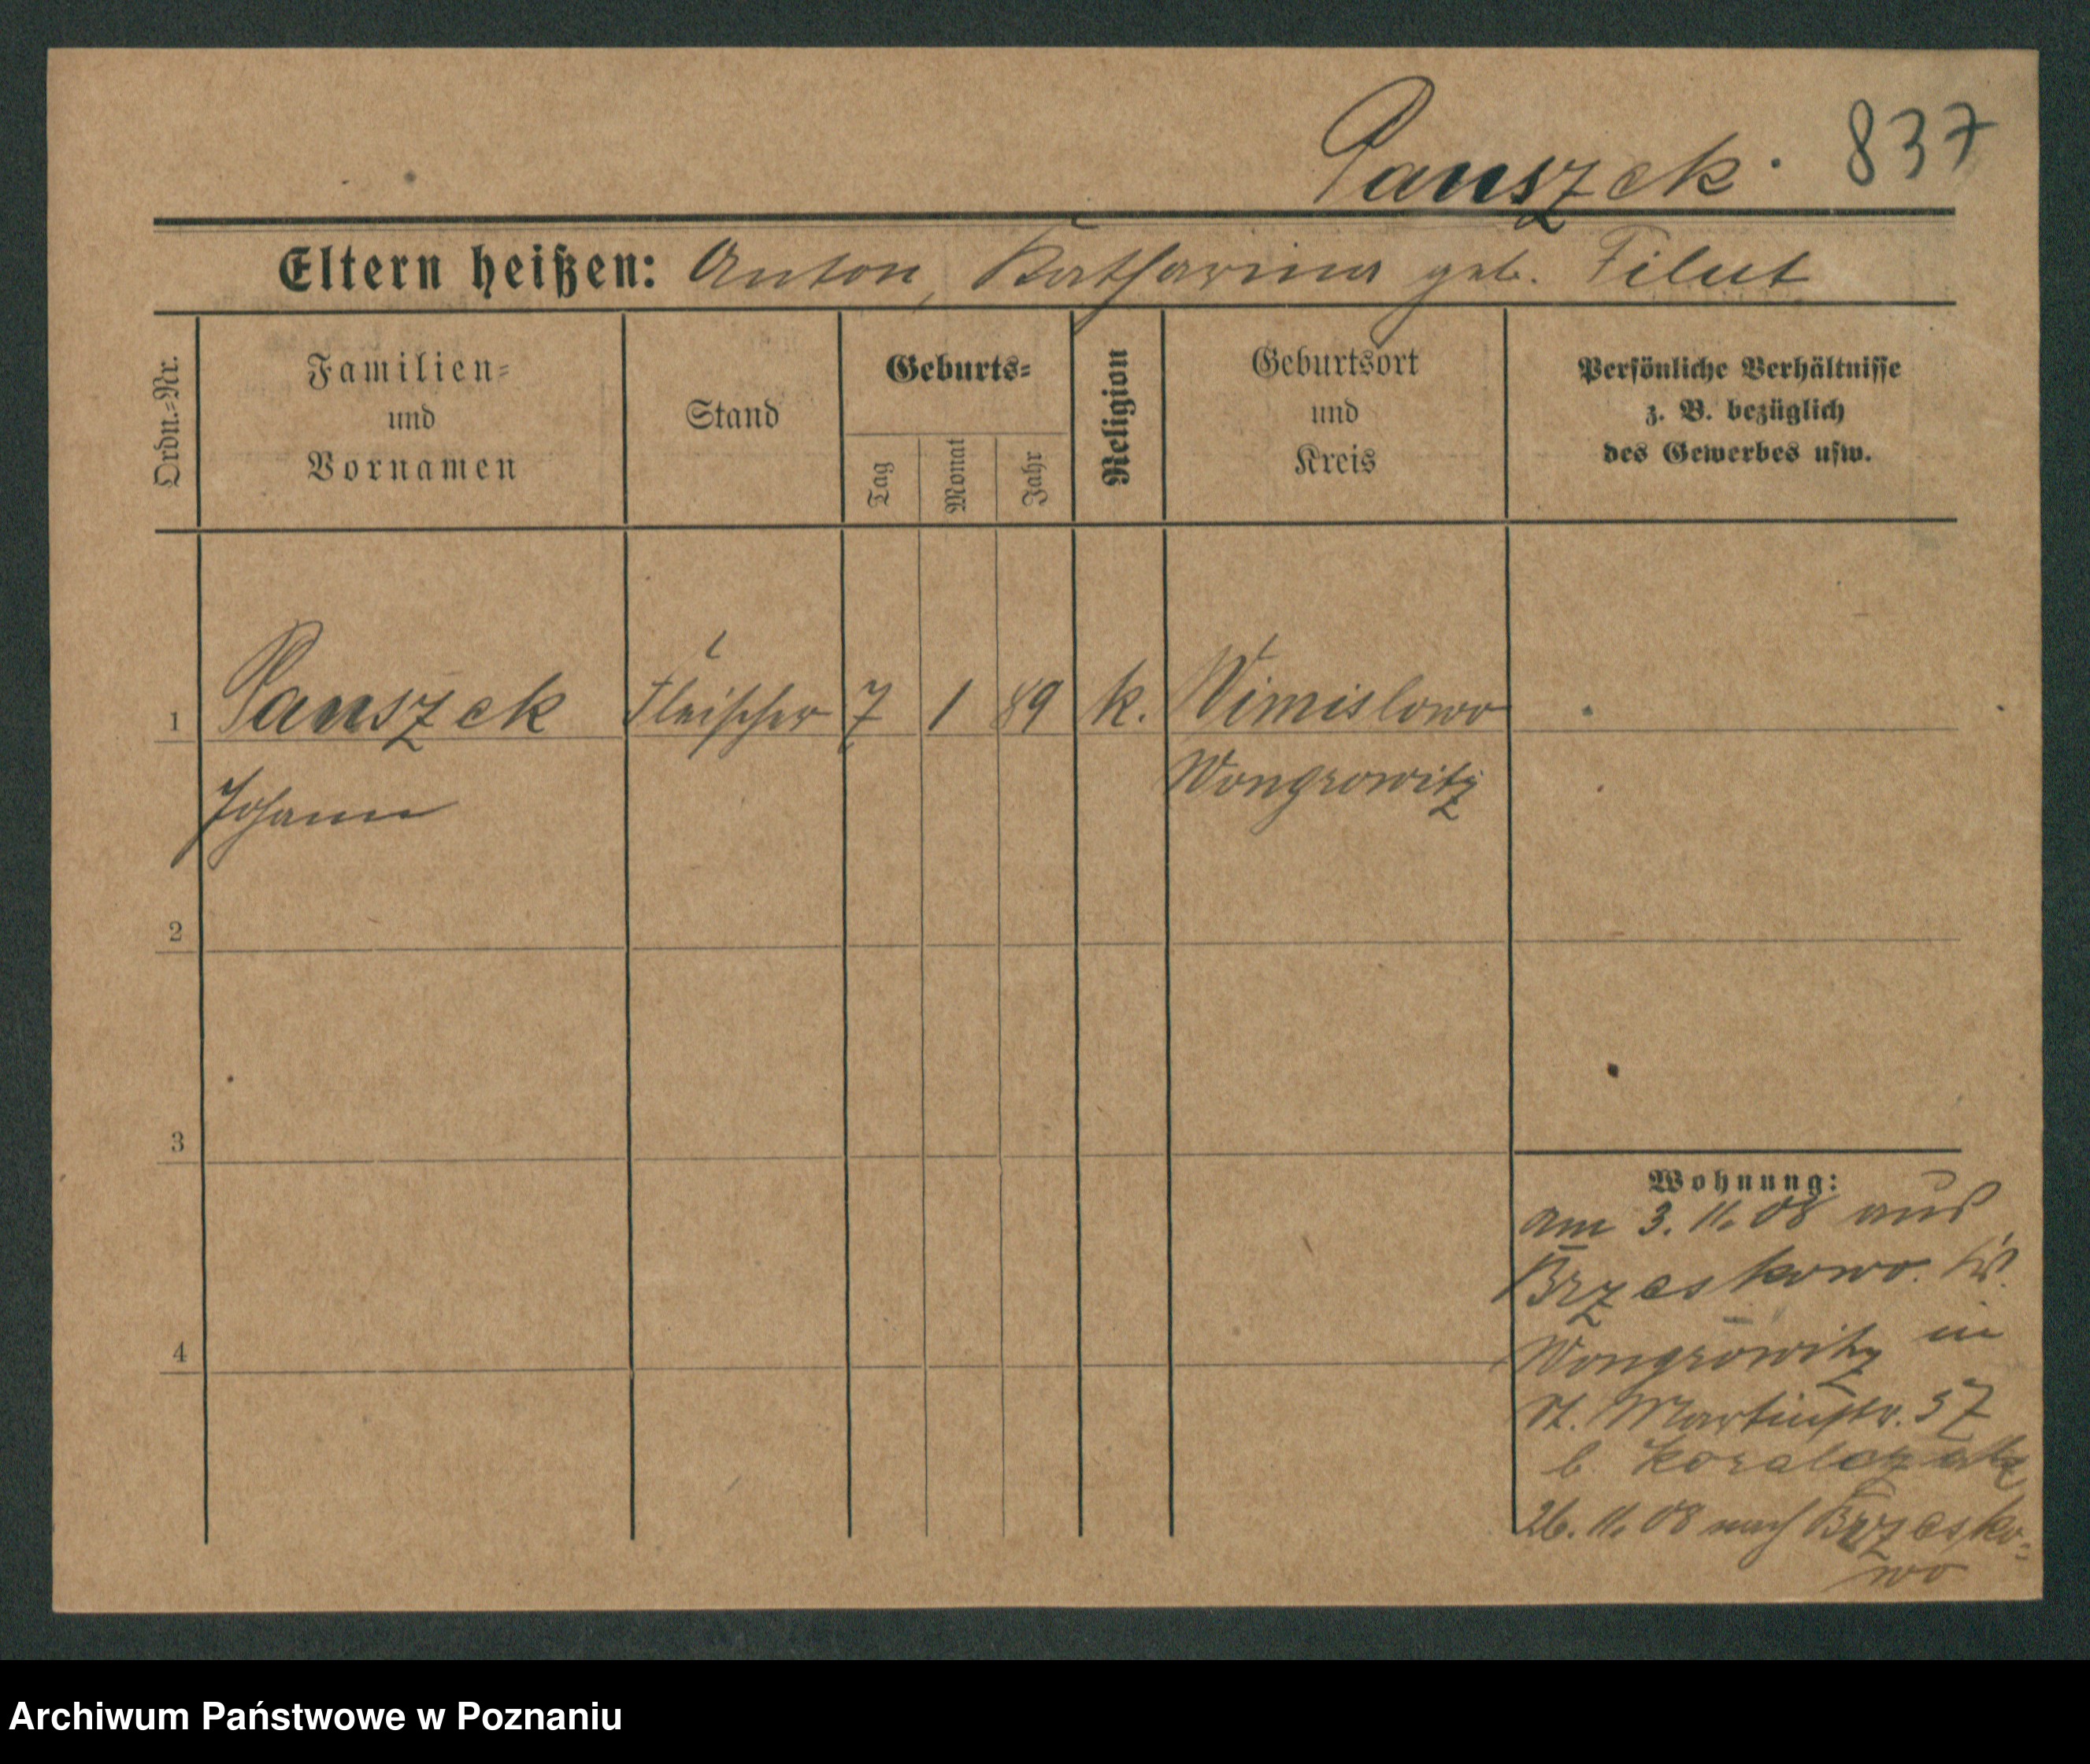 Panszek. 837
Eltern heißen: Anton, Katharina geb. Filut
Ordn.=Nr.
Familien=
und
Vornamen
Stand
Geburts=
Tag
Monat
Jahr
Religion
Geburtsort
und
Kreis
Persönliche Verhältnisse
z. B. bezüglich
des Gewerbes usw.
1 Panszek Fleischer 7 1 89 k. Wimislowo
Johann Wongrowitz
2
3
4
Wohnung:
am 3. 11. 08 aus
Brzeskowo. Krs.
Wongrowitz in
St. Martinstr. 37
b.
26. 11. 08 nach Brzesko=
wo
Archiwum Państwowe w Poznaniu